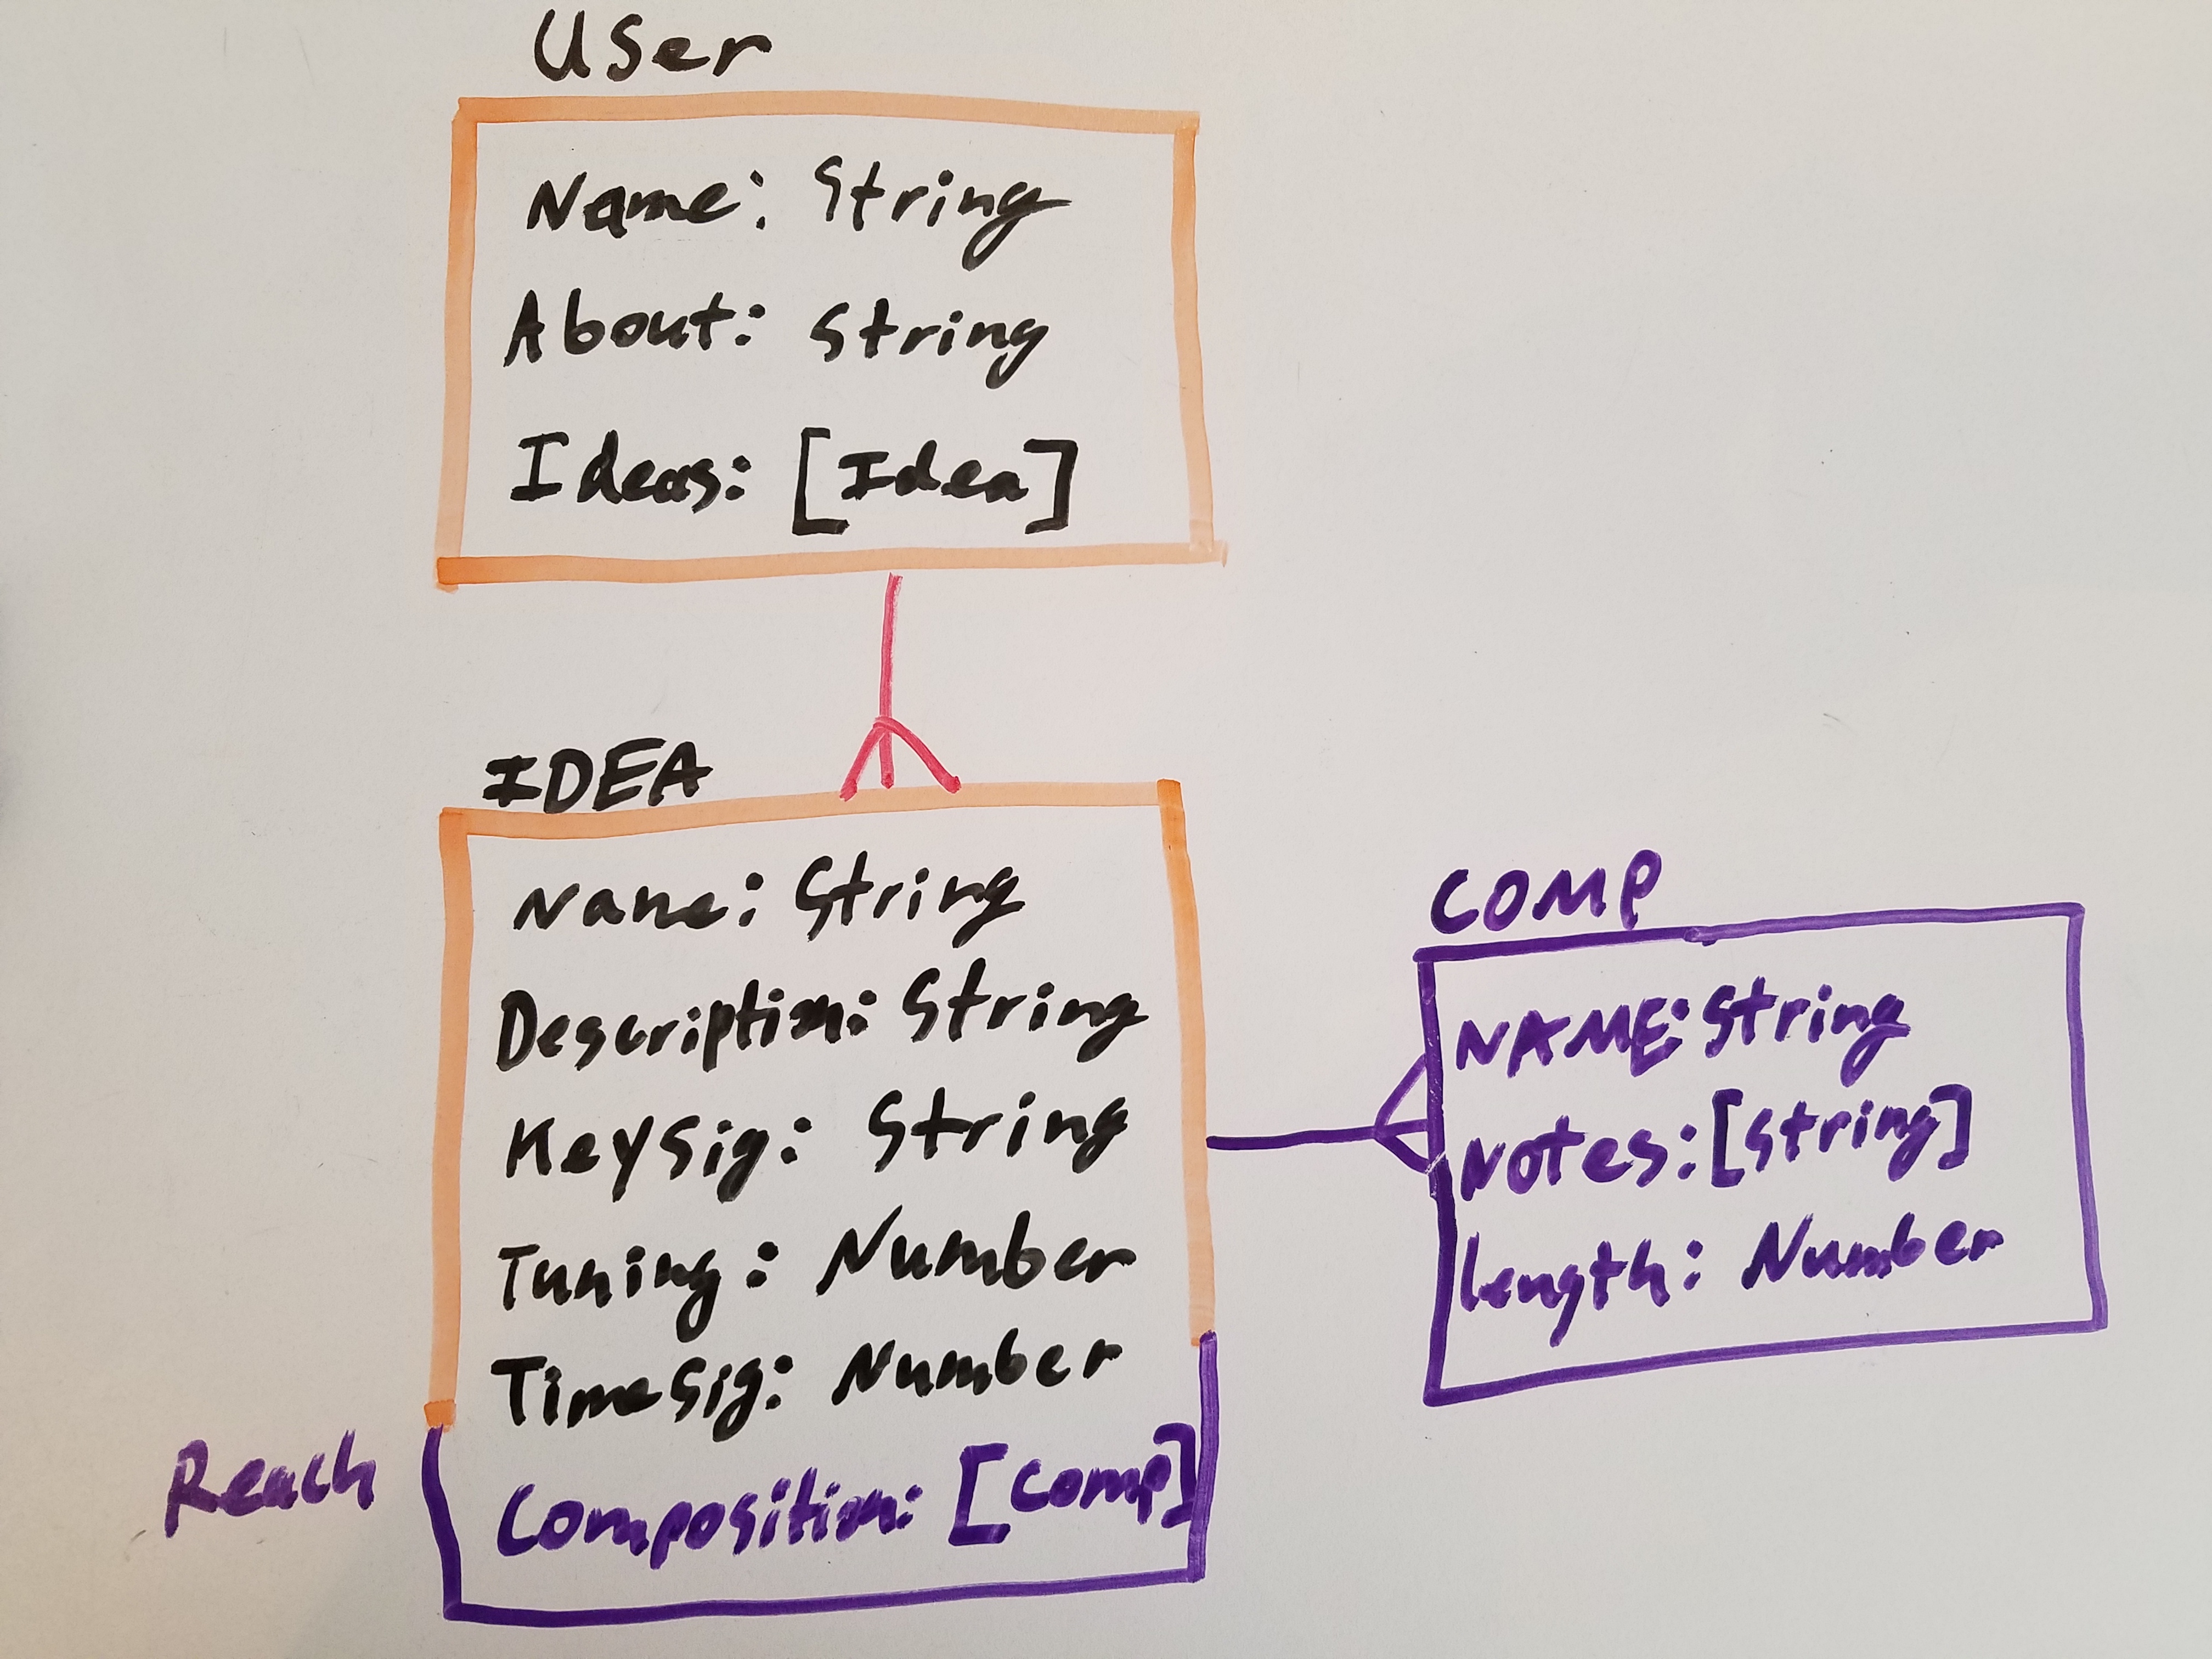 User
Name: String
About: String
Ideas: [Idea]
IDEA
Name: String
Description: String
KeySig: String
Tuning: Number
TimeSig: Number
Reach
Composition: [Comp]
COMP
NAME: String
Notes: [String]
length: Number